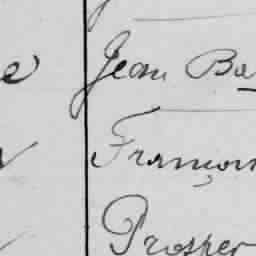 e Jean Ba
François
Prosper